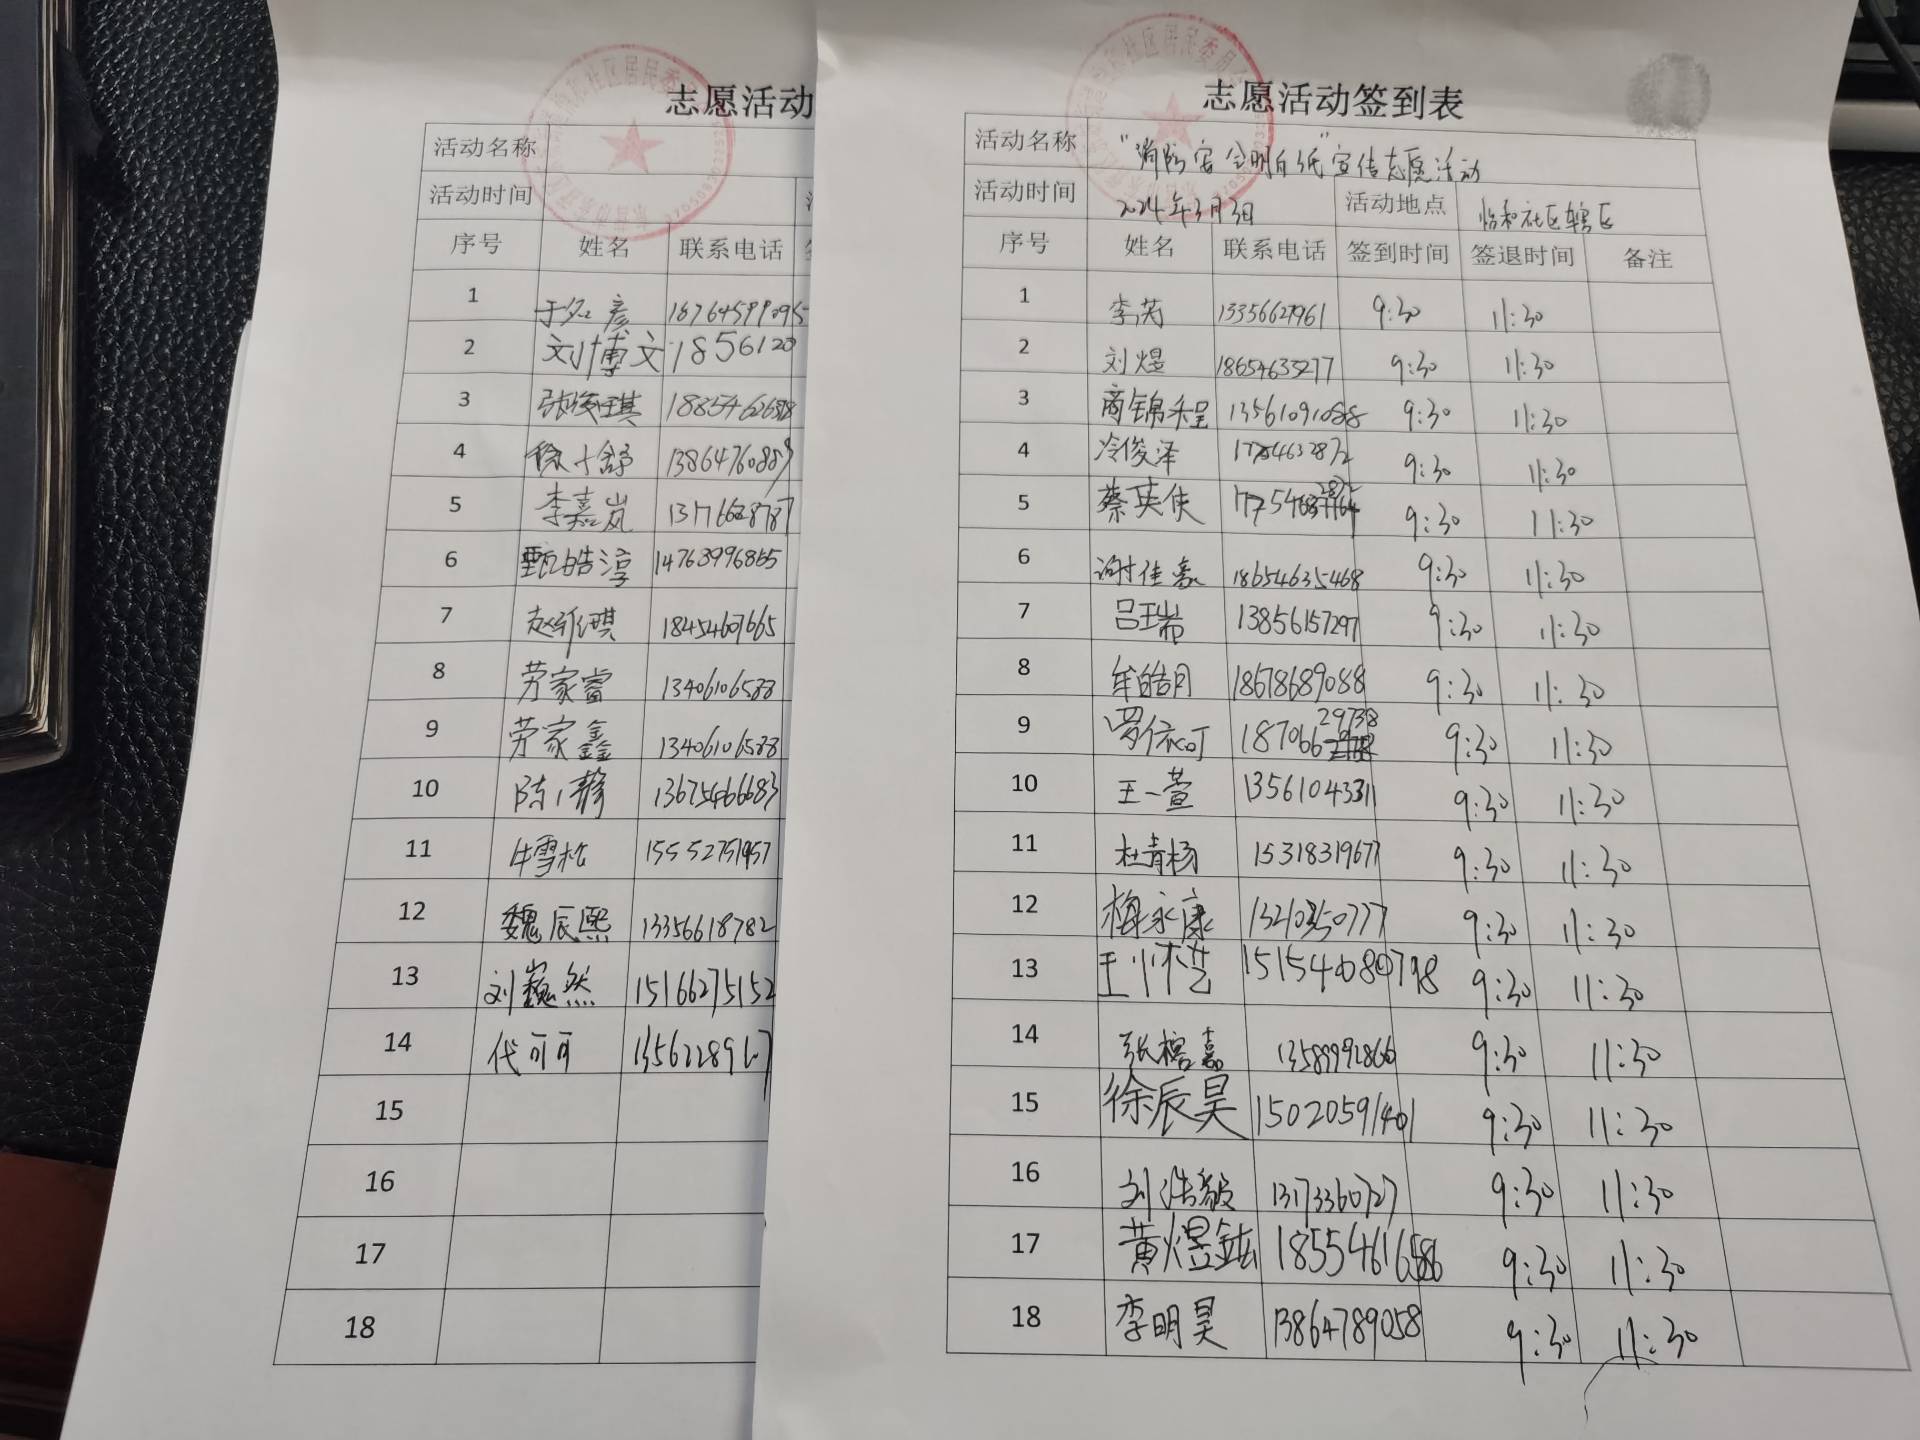 志愿活动
活动名称
活动时间
序号 姓名 联系电话
1 187645990915
2 刘博文 1856120
3 张筱琪
4 徐小舒
5 李嘉岚
6 甄皓淳 14763996855
7 18454607665
8 劳家睿 13406106588
9 劳家鑫 13406106588
10 陈静 13675466683
11 牛雪松 15552751957
12 魏辰熙 13356618782
13 刘巍然 15166275152
14 代可可
15
16
17
18
志愿活动签到表
活动名称 "消防安全明白纸"宣传志愿活动
活动时间 2024年3月3日 活动地点 怡和社区辖区
序号 姓名 联系电话 签到时间 签退时间 备注
1 李芮 13356627961 9:30 11:30
2 刘煜 18654635277 9:30 11:30
3 商锦程 13561091088 9:30 11:30
4 冷俊泽 9:30 11:30
5 蔡英俊 9:30 11:30
6 谢佳豪 18654635468 9:30 11:30
7 吕瑞 13856157297 9:30 11:30
8 牟皓月 18678689088 9:30 11:30
9 罗依可 18706629738 9:30 11:30
10 王一萱 13561043311 9:30 11:30
11 杜青杨 15318319677 9:30 11:30
12 梅永康 9:30 11:30
13 9:30 11:30
14 张榕嘉 13589992866 9:30 11:30
15 徐辰昊 15020591401 9:30 11:30
16 刘浩毅 13173360727 9:30 11:30
17 黄煜鈜 9:30 11:30
18 李明昊 13864789058 9:30 11:30